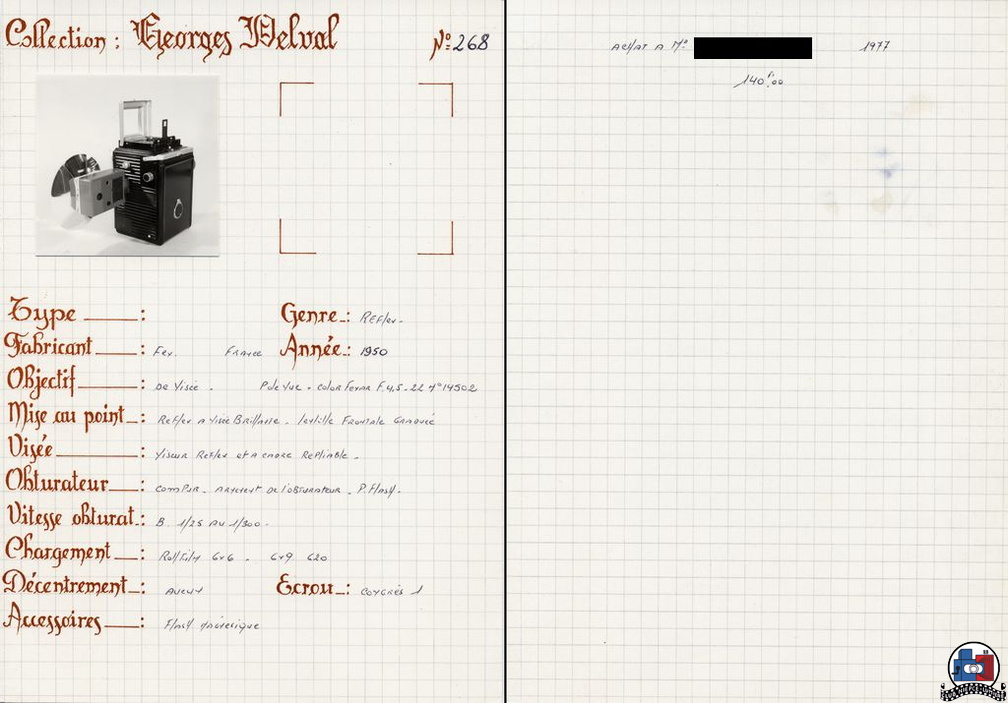 Collection : Georges Delval
N° 268
Type :
Genre : Reflex.
Fabricant : Fex. France
Année : 1950
Objectif : De Visée. P de Vue. Color Fexar F.4,5-22 N°14502
Mise au point : Reflex a Visée Brillante. lentille Frontale Graduée
Visée : Viseur Reflex et a cadre Repliable.
Obturateur : Compur. Armement de l'obturateur. P.Flash.
Vitesse obturat. : B. 1/25 au 1/300.
Chargement : Roll Film 6x6. 6x9 620
Décentrement : Aucun
Ecrou : Congrès 1
Accessoires : Flash
Achat a Mr 1977
140F,00